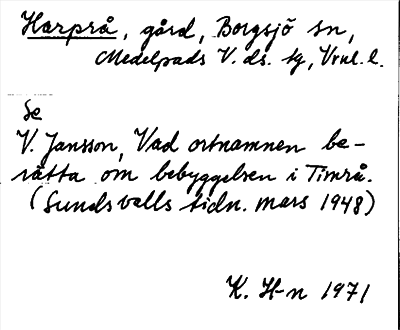 Harprå, gård, Borgsjö sn,
Medelpads V. ds. tg, Vnl. l.
Se
V. Jansson, Vad ortnamnen be-
rätta om bebyggelsen i Timrå.
(Sundsvalls tidn. mars 1948)
K. H-n 1971